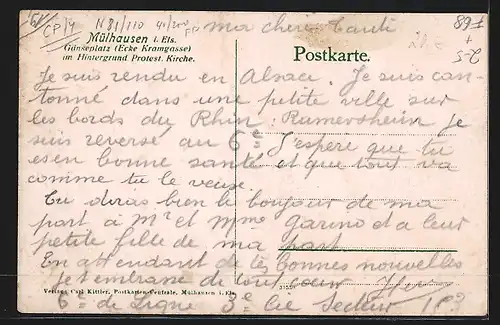 CP/4 N81/110 40/200
ma chère Tanti
89
Mülhausen i. Els.
Gänseplatz (Ecke Kramgasse)
im Hintergrund Protest. Kirche.
Postkarte.
Je suis rendu en Alsace. Je suis can-
tonné dans une petite ville sur
les bords du Rhin: Rumersheim je
suis reversé au 6e. J'espere que tu
es en bonne santé et que tout va
comme tu le veuse.
Tu diras bien le bonjour de ma
part à Mr et Mme Garino et a leur
petite fille de ma part.
En attendant de tes bonnes nouvelles
je t'embrasse de tout coeur
Verlag: Carl Kittler, Postkarten-Centrale, Mülhausen i. Els.
6e de Ligne 3e Cie Secteur 183